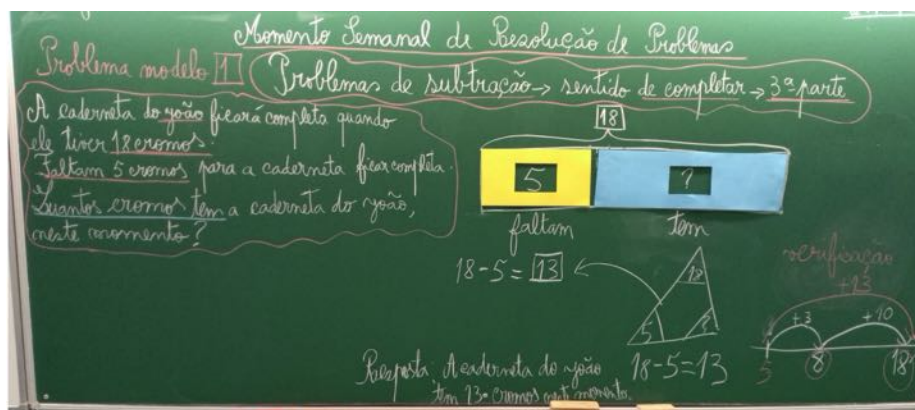 Momento Semanal de Resolução de Problemas
Problema modelo 1
Problemas de subtração → sentido de completar → 3ª parte
A caderneta do joão ficará completa quando
ele tiver 18 cromos.
Faltam 5 cromos para a caderneta ficar completa.
Quantos cromos tem a caderneta do joão,
neste momento?
18
5 ?
faltam tem
18-5=13
18
5 ?
18-5=13
verificação
+13
+3 +10
5 8 18
Resposta: A caderneta do joão
tem 13 cromos neste momento.